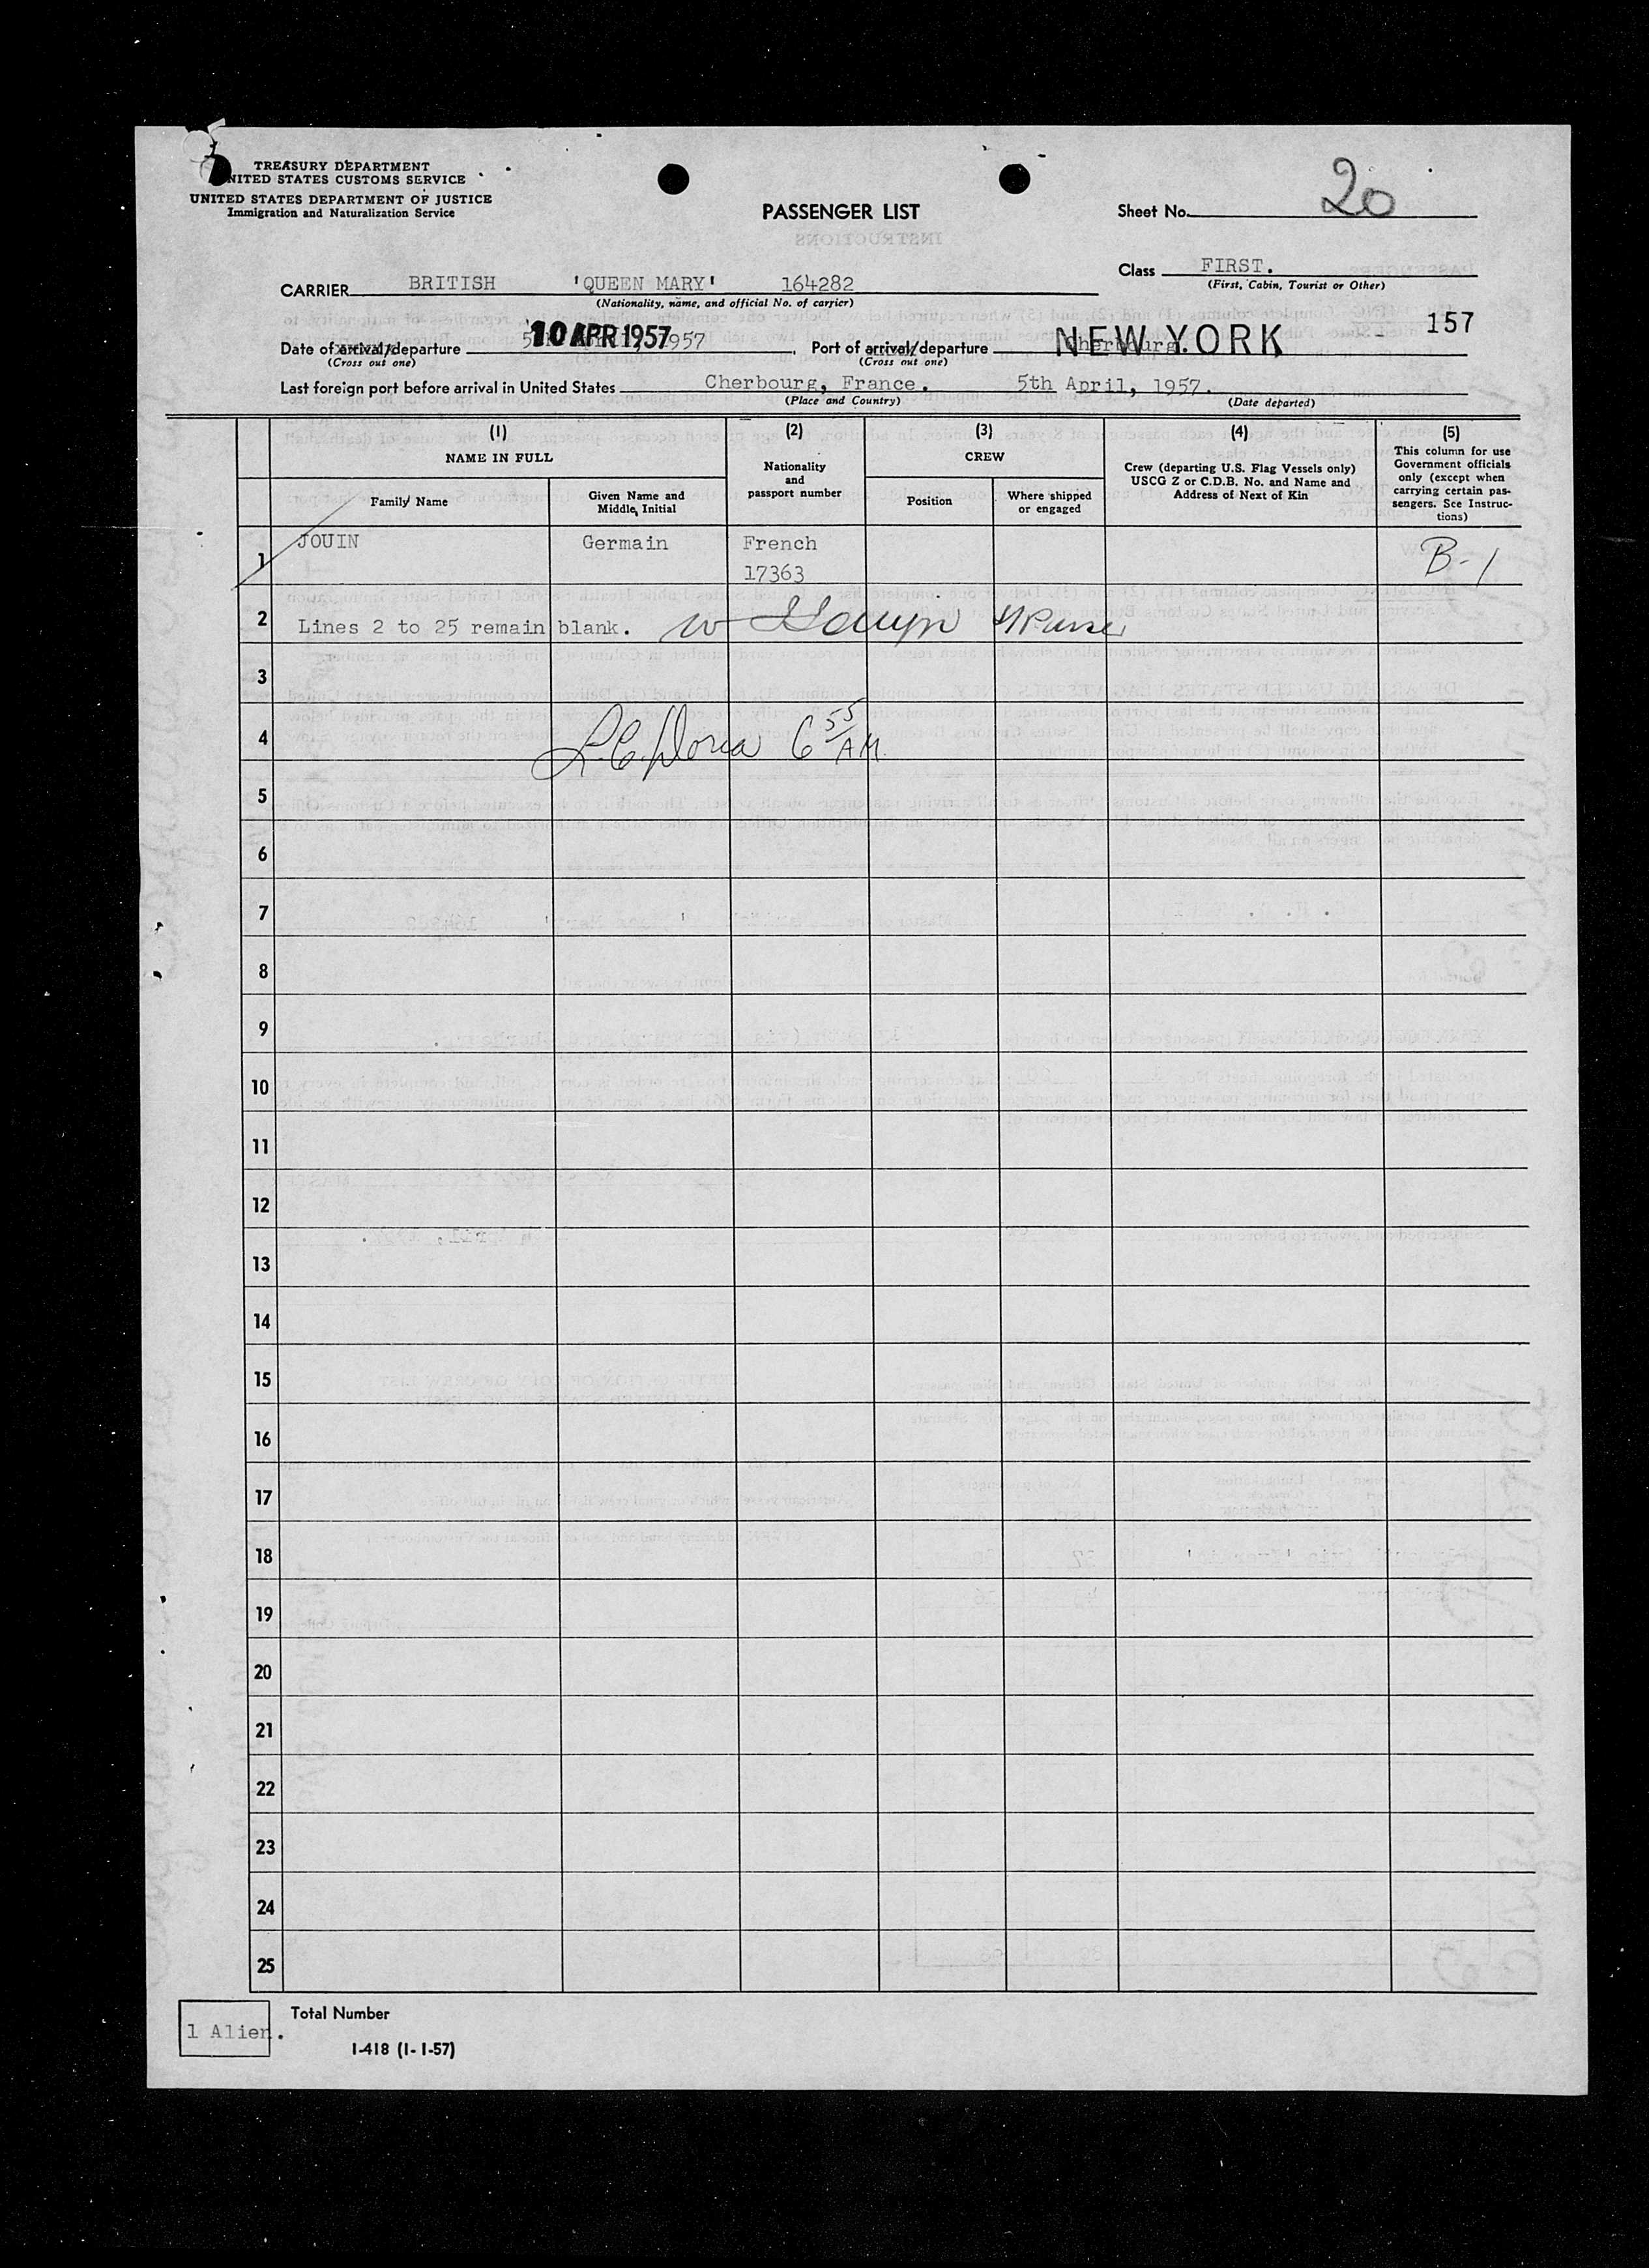 TREASURY DEPARTMENT
UNITED STATES CUSTOMS SERVICE
UNITED STATES DEPARTMENT OF JUSTICE
Immigration and Naturalization Service
PASSENGER LIST
Sheet No. 20
Class FIRST.
(First, Cabin, Tourist or Other)
CARRIER BRITISH 'QUEEN MARY' 164282
(Nationality, name, and official No. of carrier)
157
Date of arrival/departure 10 APR 1957
(Cross out one)
Port of arrival/departure Cherbourg. NEW YORK
(Cross out one)
Last foreign port before arrival in United States Cherbourg, France. 5th April, 1957.
(Place and Country) (Date departed)
(1) NAME IN FULL
Family Name
Given Name and Middle Initial
(2) Nationality and passport number
(3) CREW
Position
Where shipped or engaged
(4) Crew (departing U.S. Flag Vessels only) USCG Z or C.D.B. No. and Name and Address of Next of Kin
(5) This column for use Government officials only (except when carrying certain passengers. See Instructions)
1 JOUIN Germain French 17363 B-1
2 Lines 2 to 25 remain blank.
3
4 6 55 AM.
5
6
7
8
9
10
11
12
13
14
15
16
17
18
19
20
21
22
23
24
25
1 Alien. Total Number
I-418 (1-1-57)